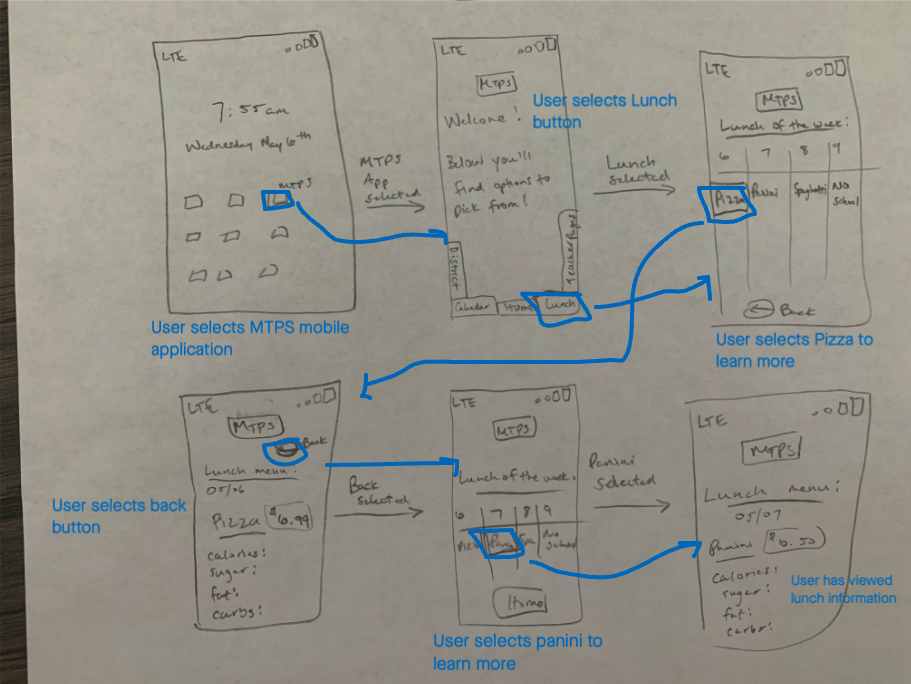 LTE
7:55am
Wednesday May 6th
MTPS
User selects MTPS mobile
application
MTPS
App
Selected
LTE
MTPS
Welcome!
Below you'll
find options to
Pick from!
District
Teacher Pages
Calendar
Home
Lunch
User selects Lunch
button
Lunch
Selected
LTE
MTPS
Lunch of the week:
6 7 8 9
Pizza Panini Spaghetti No
School
Back
User selects Pizza to
learn more
LTE
MTPS
Back
Lunch menu:
05/06
Pizza $6.99
calories:
sugar:
fat:
carbs:
User selects back
button
Back
Selected
LTE
MTPS
Lunch of the week:
6 7 8 9
No
School
Home
User selects panini to
learn more
Panini
Selected
LTE
MTPS
Lunch menu:
05/07
Panini $6.50
calories:
sugar:
fat:
carbs:
User has viewed
lunch information